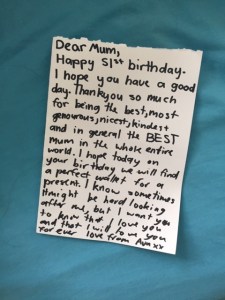 Dear Mum,
Happy 51st birthday.
I hope you have a good
day. Thankyou so much
for being the best, most
genourous, nicest, kindest
and in general the BEST
mum in the whole entire
world. I hope today on
your birthday we will find
a perfect wallet for a
present. I know sometimes
it might be hard looking
after me, but I want you
to know that I love you
and that I will love you
for ever love from Ava xx